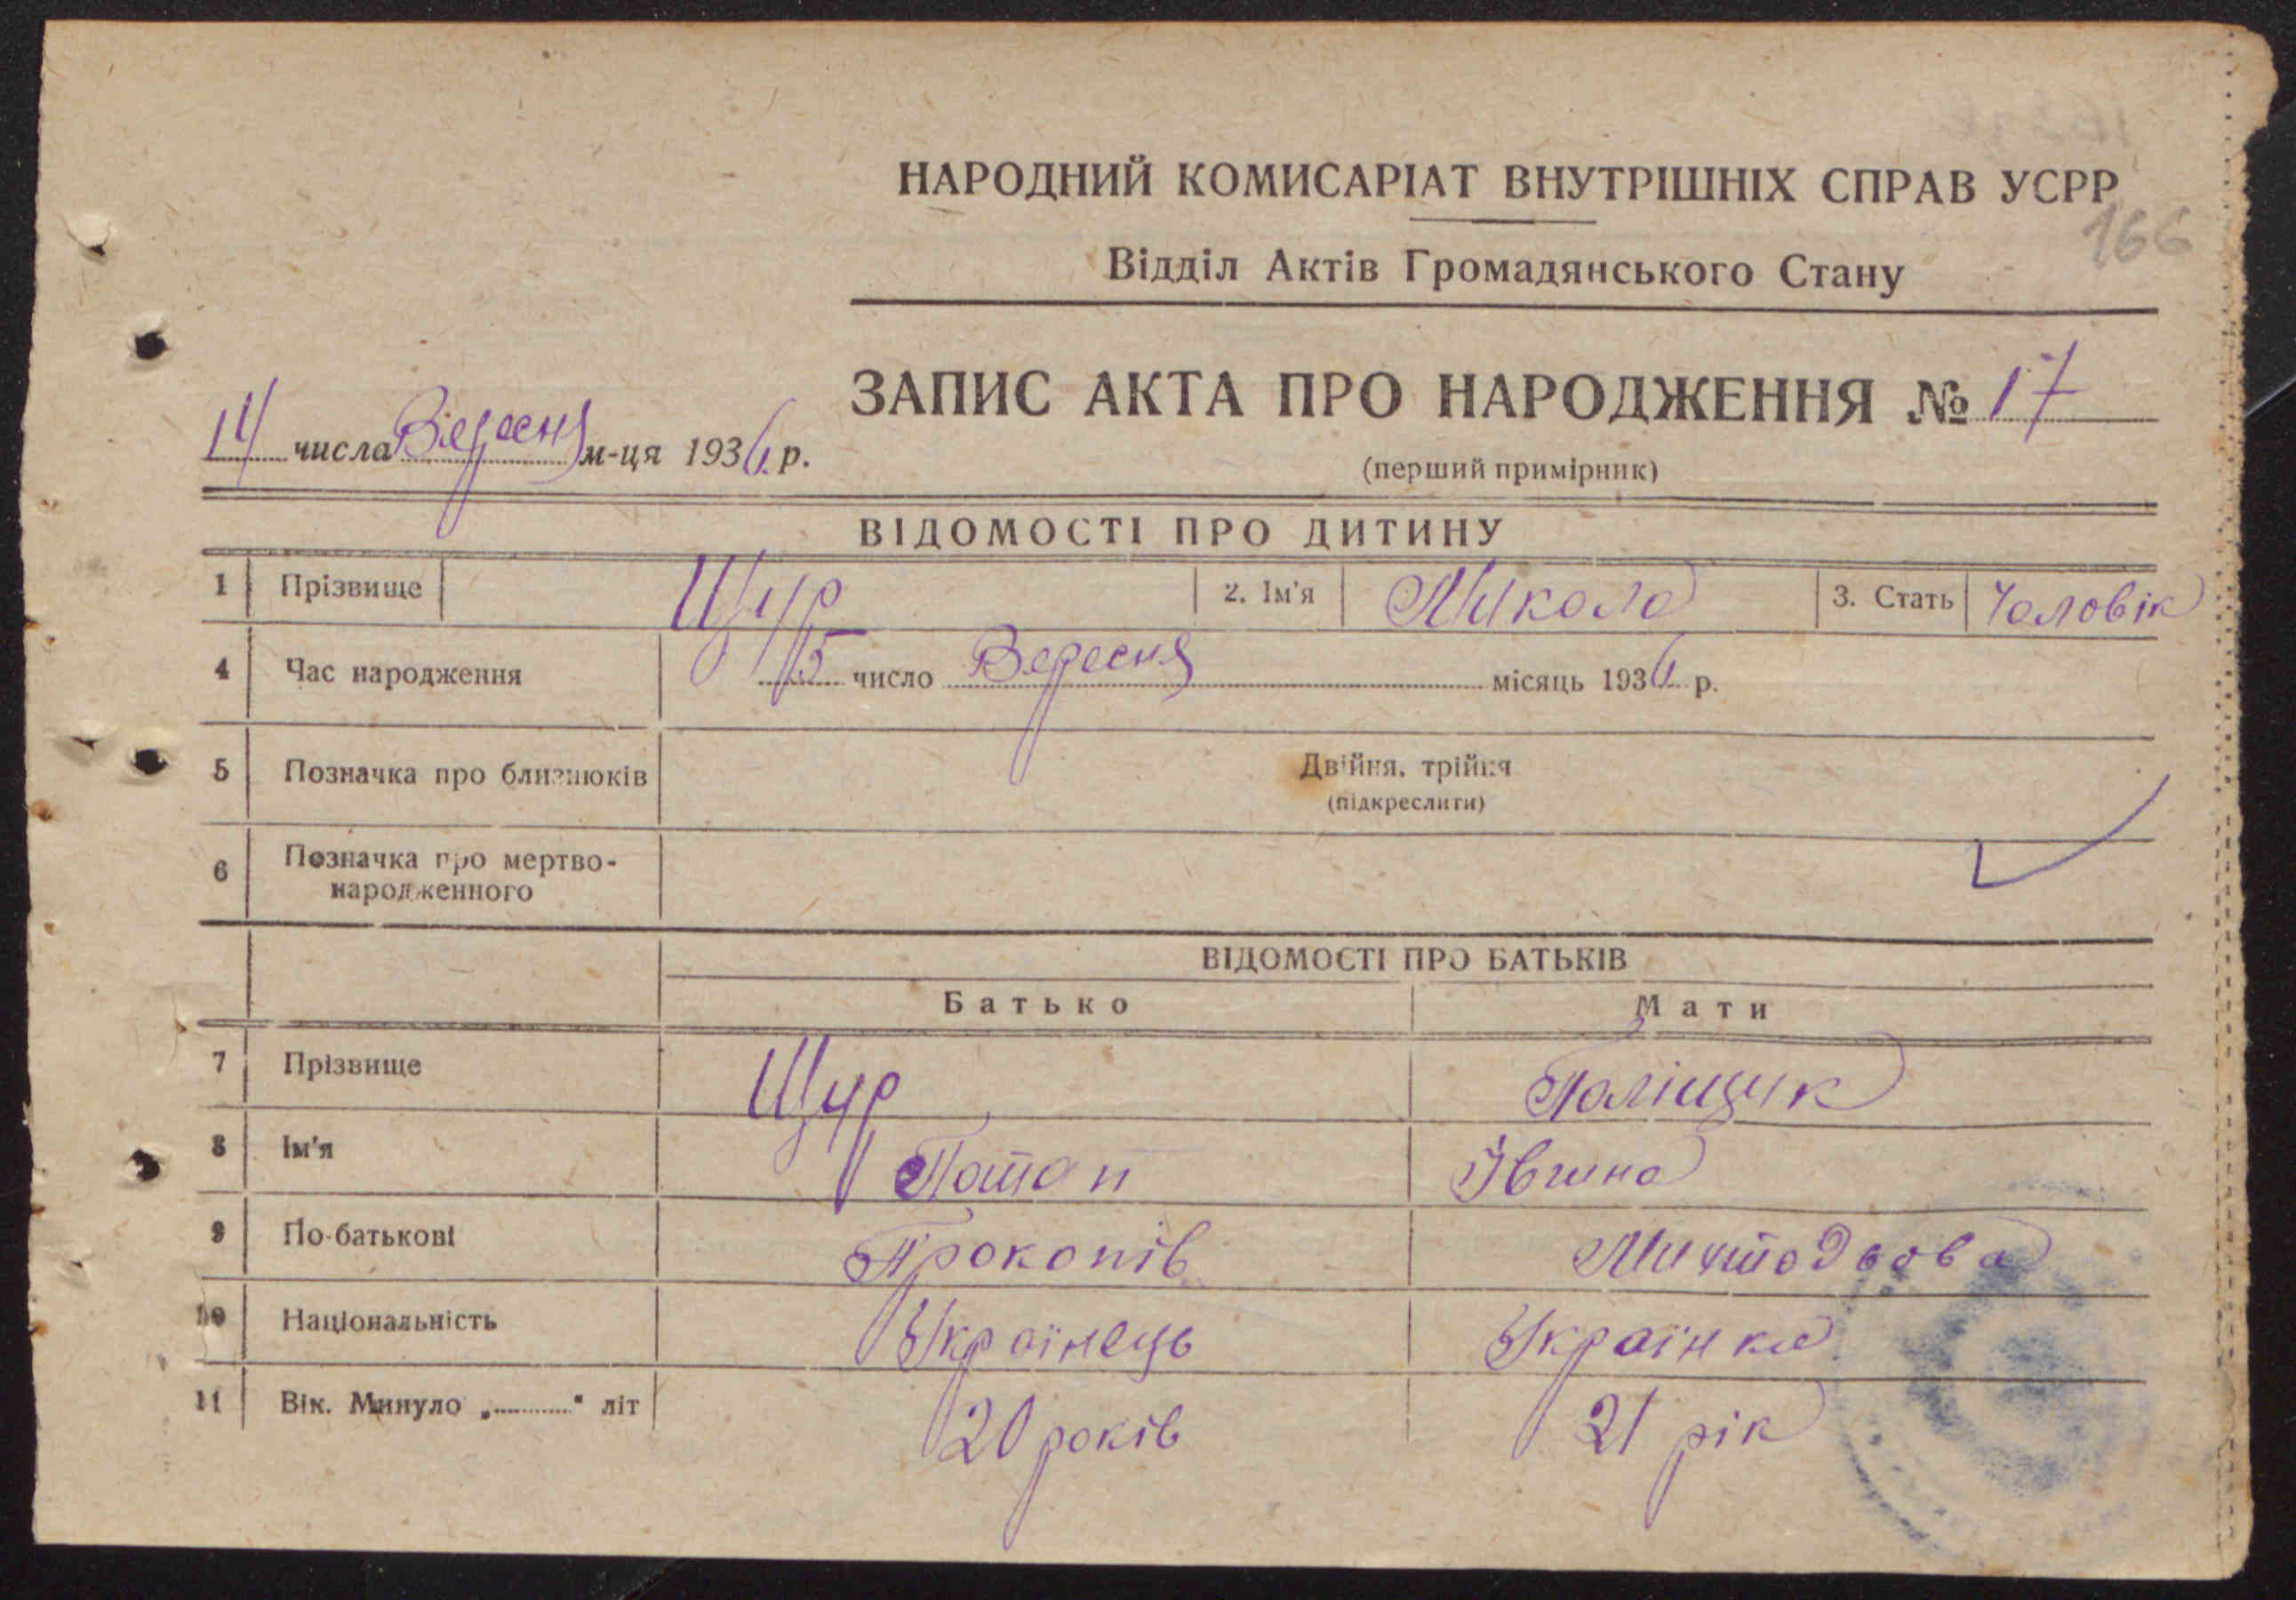 НАРОДНИЙ КОМИСАРІАТ ВНУТРІШНІХ СПРАВ УСРР
166
Відділ Актів Громадянського Стану
ЗАПИС АКТА ПРО НАРОДЖЕННЯ № 17
14 числа Вересня м-ця 1936 р.
(перший примірник)
ВІДОМОСТІ ПРО ДИТИНУ
1 Прізвище Щур 2. Ім'я Микола 3. Стать Чоловік
4 Час народження 5 число Вересня місяць 1936 р.
5 Позначка про близнюків Двійня, трійня
(підкреслити)
6 Позначка про мертво-
народженного
ВІДОМОСТІ ПРО БАТЬКІВ
Батько Мати
7 Прізвище Щур Поліщук
8 Ім'я Потап Ївгина
9 По-батькові Прокопів
10 Національність Українець Українка
11 Вік. Минуло „ " літ 20 років 21 рік